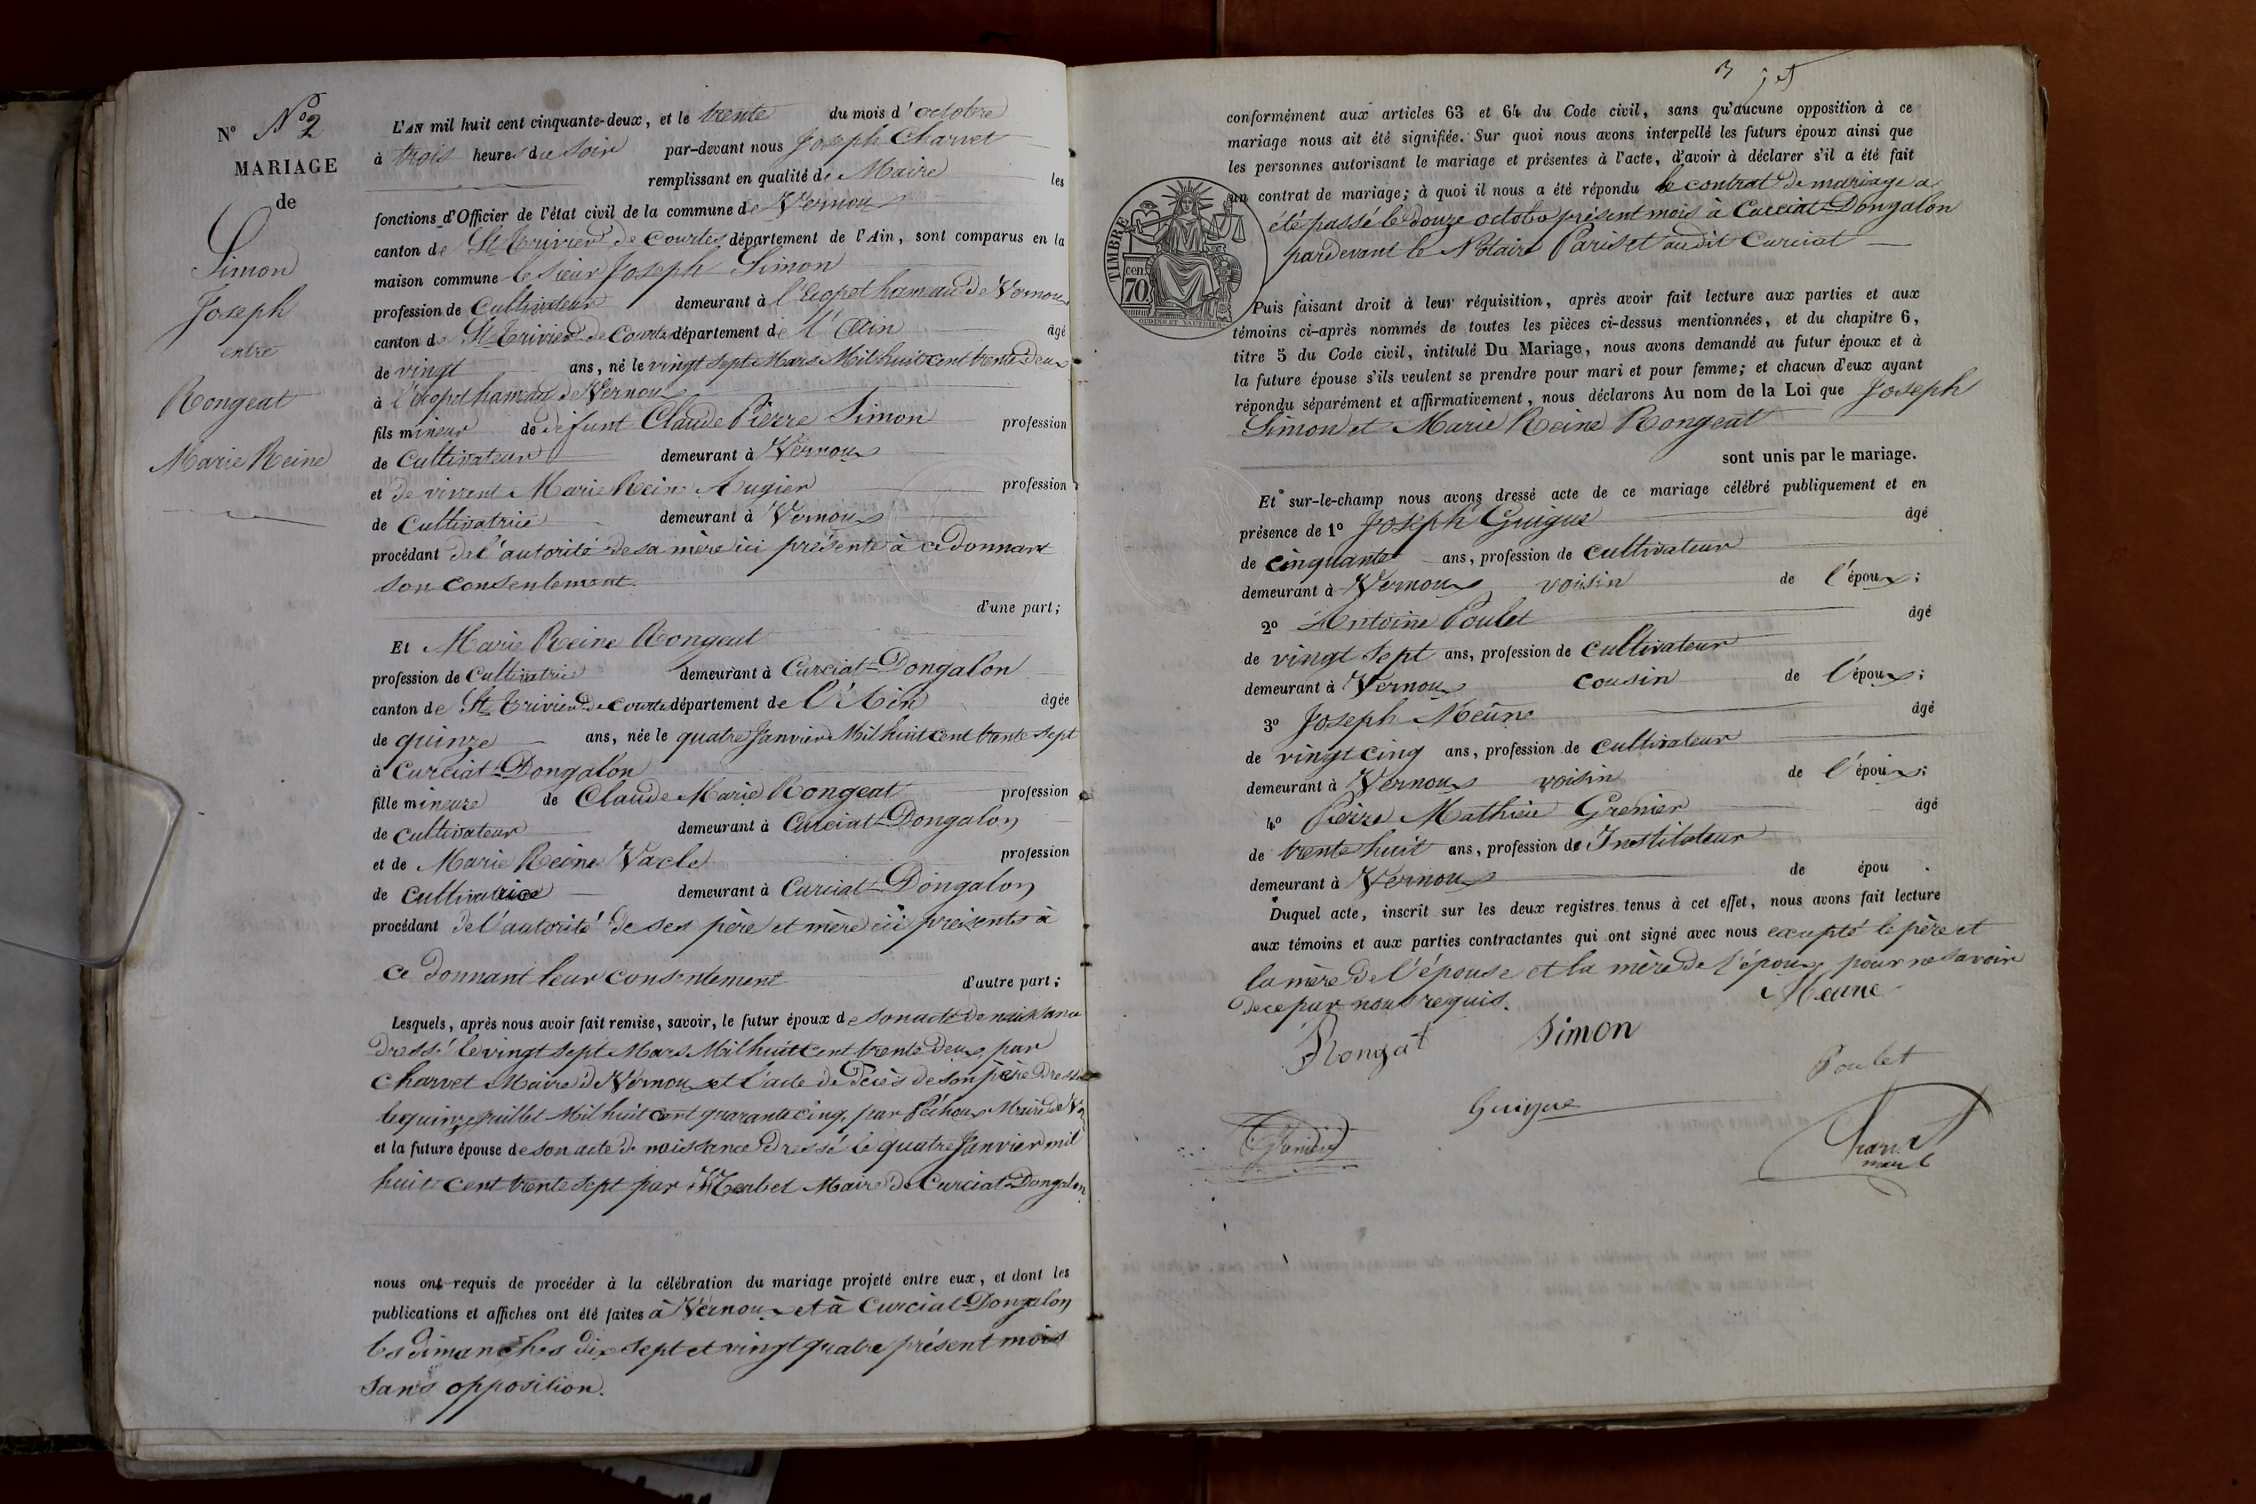 N° N° 2
MARIAGE
de
Simon
Joseph
entre
Rongeat
Marie Reine
L'AN mil huit cent cinquante-deux, et le trente du mois d'octobre
à trois heures du soir par-devant nous Joseph Charvet
remplissant en qualité de Maire les
fonctions d'Officier de l'état civil de la commune de Vernoux
canton de St Trivier de Courtes département de l'Ain, sont comparus en la
maison commune le sieur Joseph Simon
profession de Cultivateur demeurant à hameau de Vernoux
canton de St Trivier de Courtes département de l'Ain âgé
de vingt ans, né le vingt sept Mars Mil huit cent trente deux
à hameau de Vernoux
fils mineur de défunt Claude Pierre Simon profession
de Cultivateur demeurant à Vernoux
et de vivent Marie Reine Augier profession
de Cultivatrice demeurant à Vernoux
procédant de l'autorité de sa mère ici présente à ce donnant
son consentement.
d'une part;
Et Marie Reine Rongeat
profession de Cultivatrice demeurant à Curciat-Dongalon
canton de St Trivier de Courtes département de l'Ain âgée
de quinze ans, née le quatre Janvier Mil huit cent trente sept
à Curciat-Dongalon
fille mineure de Claude Marie Rongeat profession
de cultivateur demeurant à Curciat-Dongalon
et de Marie Reine Vacle profession
de Cultivatrice demeurant à Curciat-Dongalon
procédant de l'autorité de ses père et mère ici présents à
ce donnant leur consentement d'autre part;
Lesquels, après nous avoir fait remise, savoir, le futur époux de son acte de naissance
dressé le vingt sept Mars Mil huit cent trente deux par
Charvet Maire de Vernoux et l'acte de Décès de son père Dressé
le quinze juillet Mil huit cent quarante cinq par Péchoux Maire de
et la future épouse de son acte de naissance dressé le quatre Janvier mil
huit cent trente sept par Maire de Curciat-Dongalon
nous ont requis de procéder à la célébration du mariage projeté entre eux, et dont les
publications et affiches ont été faites à Vernoux et à Curciat-Dongalon
les dimanches dix sept et vingt quatre présent mois
sans opposition.
3
conformément aux articles 63 et 64 du Code civil, sans qu'aucune opposition à ce
mariage nous ait été signifiée. Sur quoi nous avons interpellé les futurs époux ainsi que
les personnes autorisant le mariage et présentes à l'acte, d'avoir à déclarer s'il a été fait
un contrat de mariage; à quoi il nous a été répondu le contrat de mariage a
été passé le douze octobre présent mois à Curciat-Dongalon
pardevant le Notaire Pariset audit Curciat
TIMBRE
cen.
70
OUDINÉ ET VAUTHIER
Puis faisant droit à leur réquisition, après avoir fait lecture aux parties et aux
témoins ci-après nommés de toutes les pièces ci-dessus mentionnées, et du chapitre 6,
titre 5 du Code civil, intitulé Du Mariage, nous avons demandé au futur époux et à
la future épouse s'ils veulent se prendre pour mari et pour femme; et chacun d'eux ayant
répondu séparément et affirmativement, nous déclarons Au nom de la Loi que Joseph
Simon et Marie Reine Rongeat
sont unis par le mariage.
Et sur-le-champ nous avons dressé acte de ce mariage célébré publiquement et en
présence de 1° Joseph Guigue âgé
de cinquante ans, profession de cultivateur
demeurant à Vernoux voisin de l'époux;
2° Antoine Poulet âgé
de vingt sept ans, profession de cultivateur
demeurant à Vernoux cousin de l'époux;
3° Joseph Meune âgé
de vingt cinq ans, profession de cultivateur
demeurant à Vernoux voisin de l'époux;
4° Pierre Mathieu Grenier âgé
de trente huit ans, profession de Instituteur
demeurant à Vernoux de épou .
Duquel acte, inscrit sur les deux registres tenus à cet effet, nous avons fait lecture
aux témoins et aux parties contractantes qui ont signé avec nous excepté le père et
la mère de l'épouse et la mère de l'époux, pour ne savoir
de ce par nous requis.
Meune
Rongat Simon
Poulet
Guigue
Grenier
Charvet
maire